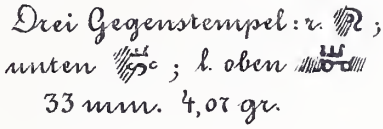 Drei Gegenstempel: r. ;
unten ; l. oben
33 mm. 4,07 gr.